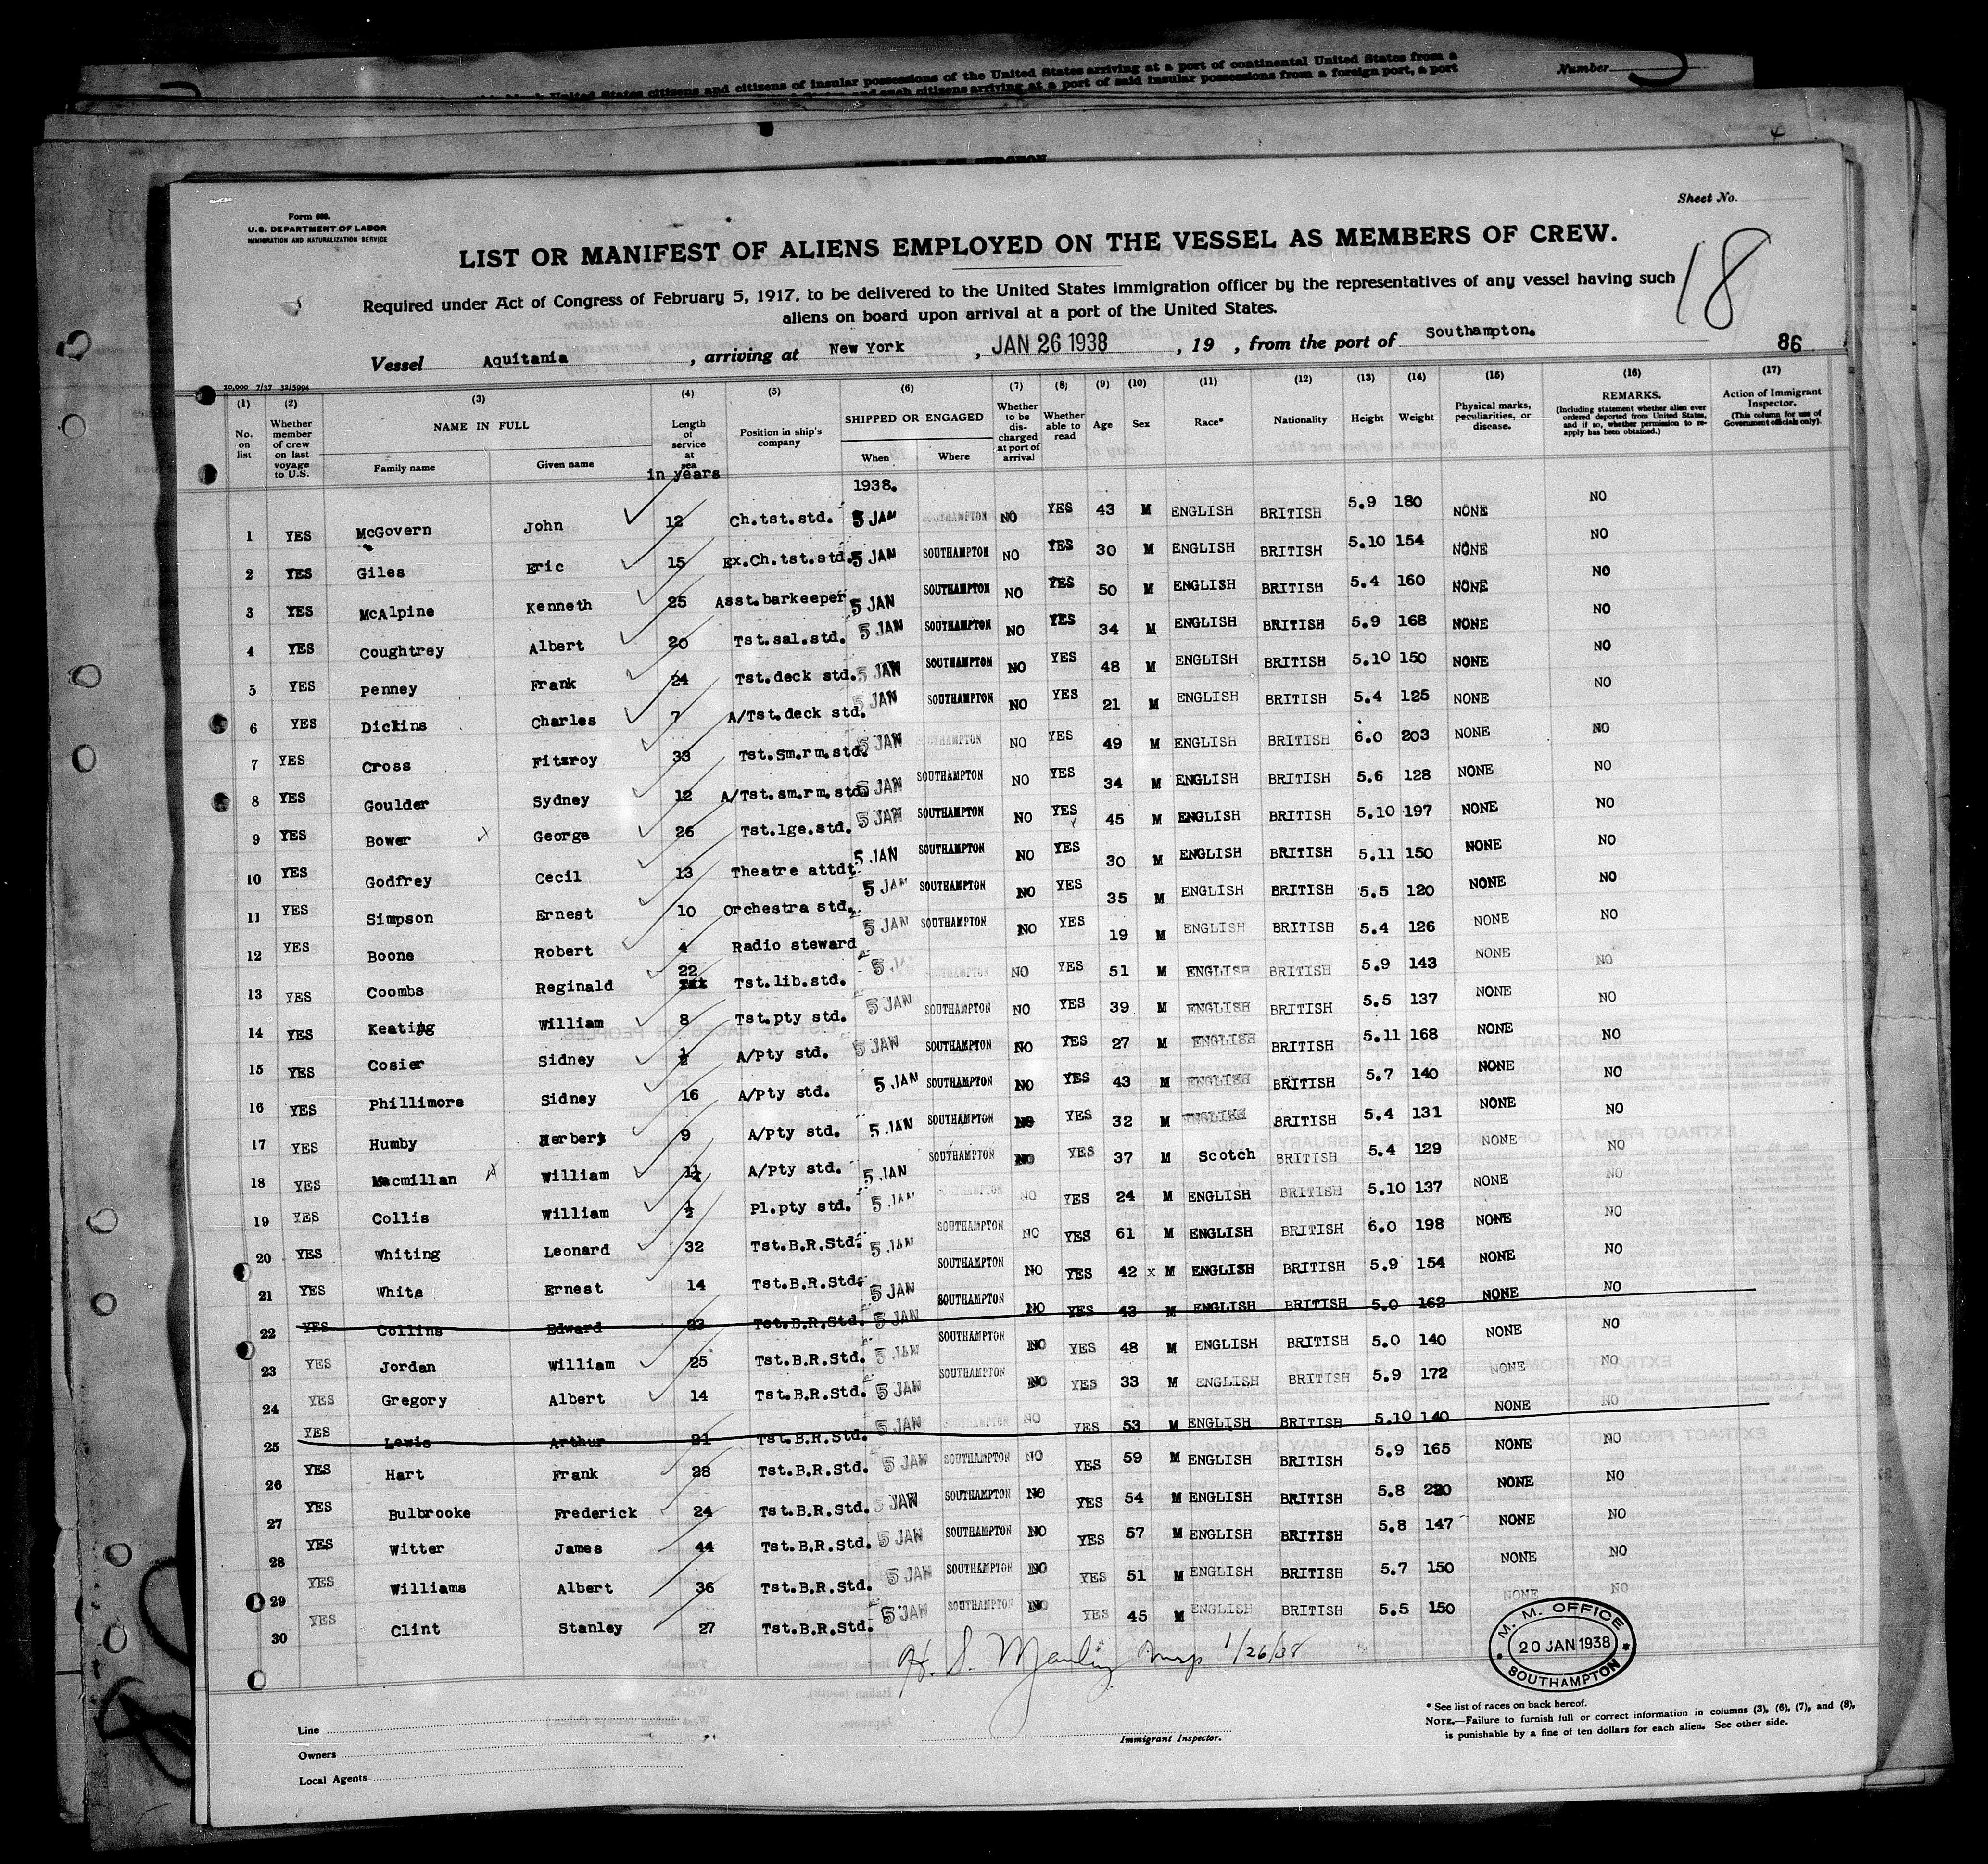 citizens of insular possessions of the United States arriving at a port of continental United States from a
United States citizens and citizens
and such citizens arriving at a port of said insular possessions from a foreign port, a port
Number
Sheet No.
Form 680.
U. S. DEPARTMENT OF LABOR
IMMIGRATION AND NATURALIZATION SERVICE
LIST OR MANIFEST OF ALIENS EMPLOYED ON THE VESSEL AS MEMBERS OF CREW.
18
Required under Act of Congress of February 5, 1917, to be delivered to the United States immigration officer by the representatives of any vessel having such
aliens on board upon arrival at a port of the United States.
Vessel Aquitania , arriving at New York , JAN 26 1938 , 19 , from the port of Southampton. 86
10,000 7/37 32/5994
(1) No. on list
(2) Whether member of crew on last voyage to U.S.
(3) NAME IN FULL Family name Given name
(4) Length of service at sea in years
(5) Position in ship's company
(6) SHIPPED OR ENGAGED When Where
(7) Whether to be discharged at port of arrival
(8) Whether able to read
(9) Age
(10) Sex
(11) Race*
(12) Nationality
(13) Height
(14) Weight
(15) Physical marks, peculiarities, or disease.
(16) REMARKS. (Including statement whether alien ever ordered deported from United States, and if so, whether permission to reapply has been obtained.)
(17) Action of Immigrant Inspector. (This column for use of Government officials only).
1938.
1 YES McGovern John 12 Ch.tst.std. 5 JAN SOUTHAMPTON NO YES 43 M ENGLISH BRITISH 5.9 180 NONE NO
2 YES Giles Eric 15 Ex.Ch.tst.std. 5 JAN SOUTHAMPTON NO YES 30 M ENGLISH BRITISH 5.10 154 NONE NO
3 YES McAlpine Kenneth 25 Asst.barkeeper 5 JAN SOUTHAMPTON NO YES 50 M ENGLISH BRITISH 5.4 160 NONE NO
4 YES Coughtrey Albert 20 Tst.sal.std. 5 JAN SOUTHAMPTON NO YES 34 M ENGLISH BRITISH 5.9 168 NONE NO
5 YES Penney Frank 24 Tst.deck std. 5 JAN SOUTHAMPTON NO YES 48 M ENGLISH BRITISH 5.10 150 NONE NO
6 YES Dickins Charles 7 A/Tst.deck std. 5 JAN SOUTHAMPTON NO YES 21 M ENGLISH BRITISH 5.4 125 NONE NO
7 YES Cross Fitzroy 33 Tst.Sm.rm.std. 5 JAN SOUTHAMPTON NO YES 49 M ENGLISH BRITISH 6.0 203 NONE NO
8 YES Goulder Sydney 12 A/Tst.sm.rm.std. 5 JAN SOUTHAMPTON NO YES 34 M ENGLISH BRITISH 5.6 128 NONE NO
9 YES Bower George 26 Tst.lge.std. 5 JAN SOUTHAMPTON NO YES 45 M ENGLISH BRITISH 5.10 197 NONE NO
10 YES Godfrey Cecil 13 Theatre attdt 5 JAN SOUTHAMPTON NO YES 30 M ENGLISH BRITISH 5.11 150 NONE NO
11 YES Simpson Ernest 10 Orchestra std. 5 JAN SOUTHAMPTON NO YES 35 M ENGLISH BRITISH 5.5 120 NONE NO
12 YES Boone Robert 4 Radio steward 5 JAN SOUTHAMPTON NO YES 19 M ENGLISH BRITISH 5.4 126 NONE NO
13 YES Coombs Reginald 22 Tst.lib.std. 5 JAN SOUTHAMPTON NO YES 51 M ENGLISH BRITISH 5.9 143 NONE NO
14 YES Keating William 8 Tst.pty std. 5 JAN SOUTHAMPTON NO YES 39 M ENGLISH BRITISH 5.5 137 NONE NO
15 YES Cosier Sidney ½ A/Pty std. 5 JAN SOUTHAMPTON NO YES 27 M ENGLISH BRITISH 5.11 168 NONE NO
16 YES Phillimore Sidney 16 A/Pty std. 5 JAN SOUTHAMPTON NO YES 43 M ENGLISH BRITISH 5.7 140 NONE NO
17 YES Humby Herbert 9 A/Pty std. 5 JAN SOUTHAMPTON NO YES 32 M ENGLISH BRITISH 5.4 131 NONE NO
18 YES Macmillan William 1¼ A/Pty std. 5 JAN SOUTHAMPTON NO YES 37 M Scotch BRITISH 5.4 129 NONE NO
19 YES Collis William ½ Pl.pty std. 5 JAN SOUTHAMPTON NO YES 24 M ENGLISH BRITISH 5.10 137 NONE NO
20 YES Whiting Leonard 32 Tst.B.R.Std. 5 JAN SOUTHAMPTON NO YES 61 M ENGLISH BRITISH 6.0 198 NONE NO
21 YES White Ernest 14 Tst.B.R.Std. 5 JAN SOUTHAMPTON NO YES 42 x M ENGLISH BRITISH 5.9 154 NONE NO
22 YES Collins Edward 23 Tst.B.R.Std. 5 JAN SOUTHAMPTON NO YES 43 M ENGLISH BRITISH 5.0 162 NONE NO
23 YES Jordan William 25 Tst.B.R.Std. 5 JAN SOUTHAMPTON NO YES 48 M ENGLISH BRITISH 5.0 140 NONE NO
24 YES Gregory Albert 14 Tst.B.R.Std. 5 JAN SOUTHAMPTON NO YES 33 M ENGLISH BRITISH 5.9 172 NONE NO
25 YES Lewis Arthur 21 Tst.B.R.Std. 5 JAN SOUTHAMPTON NO YES 53 M ENGLISH BRITISH 5.10 140 NONE NO
26 YES Hart Frank 28 Tst.B.R.Std. 5 JAN SOUTHAMPTON NO YES 59 M ENGLISH BRITISH 5.9 165 NONE NO
27 YES Bulbrooke Frederick 24 Tst.B.R.Std. 5 JAN SOUTHAMPTON NO YES 54 M ENGLISH BRITISH 5.8 220 NONE NO
28 YES Witter James 44 Tst.B.R.Std. 5 JAN SOUTHAMPTON NO YES 57 M ENGLISH BRITISH 5.8 147 NONE NO
29 YES Williams Albert 36 Tst.B.R.Std. 5 JAN SOUTHAMPTON NO YES 51 M ENGLISH BRITISH 5.7 150 NONE NO
30 YES Clint Stanley 27 Tst.B.R.Std. 5 JAN SOUTHAMPTON NO YES 45 M ENGLISH BRITISH 5.5 150 NONE NO
H. S. 1/26/38
M. M. OFFICE
20 JAN 1938
SOUTHAMPTON
Line
Owners
Local Agents
Immigrant Inspector.
* See list of races on back hereof.
NOTE.—Failure to furnish full or correct information in columns (3), (6), (7), and (8),
is punishable by a fine of ten dollars for each alien. See other side.